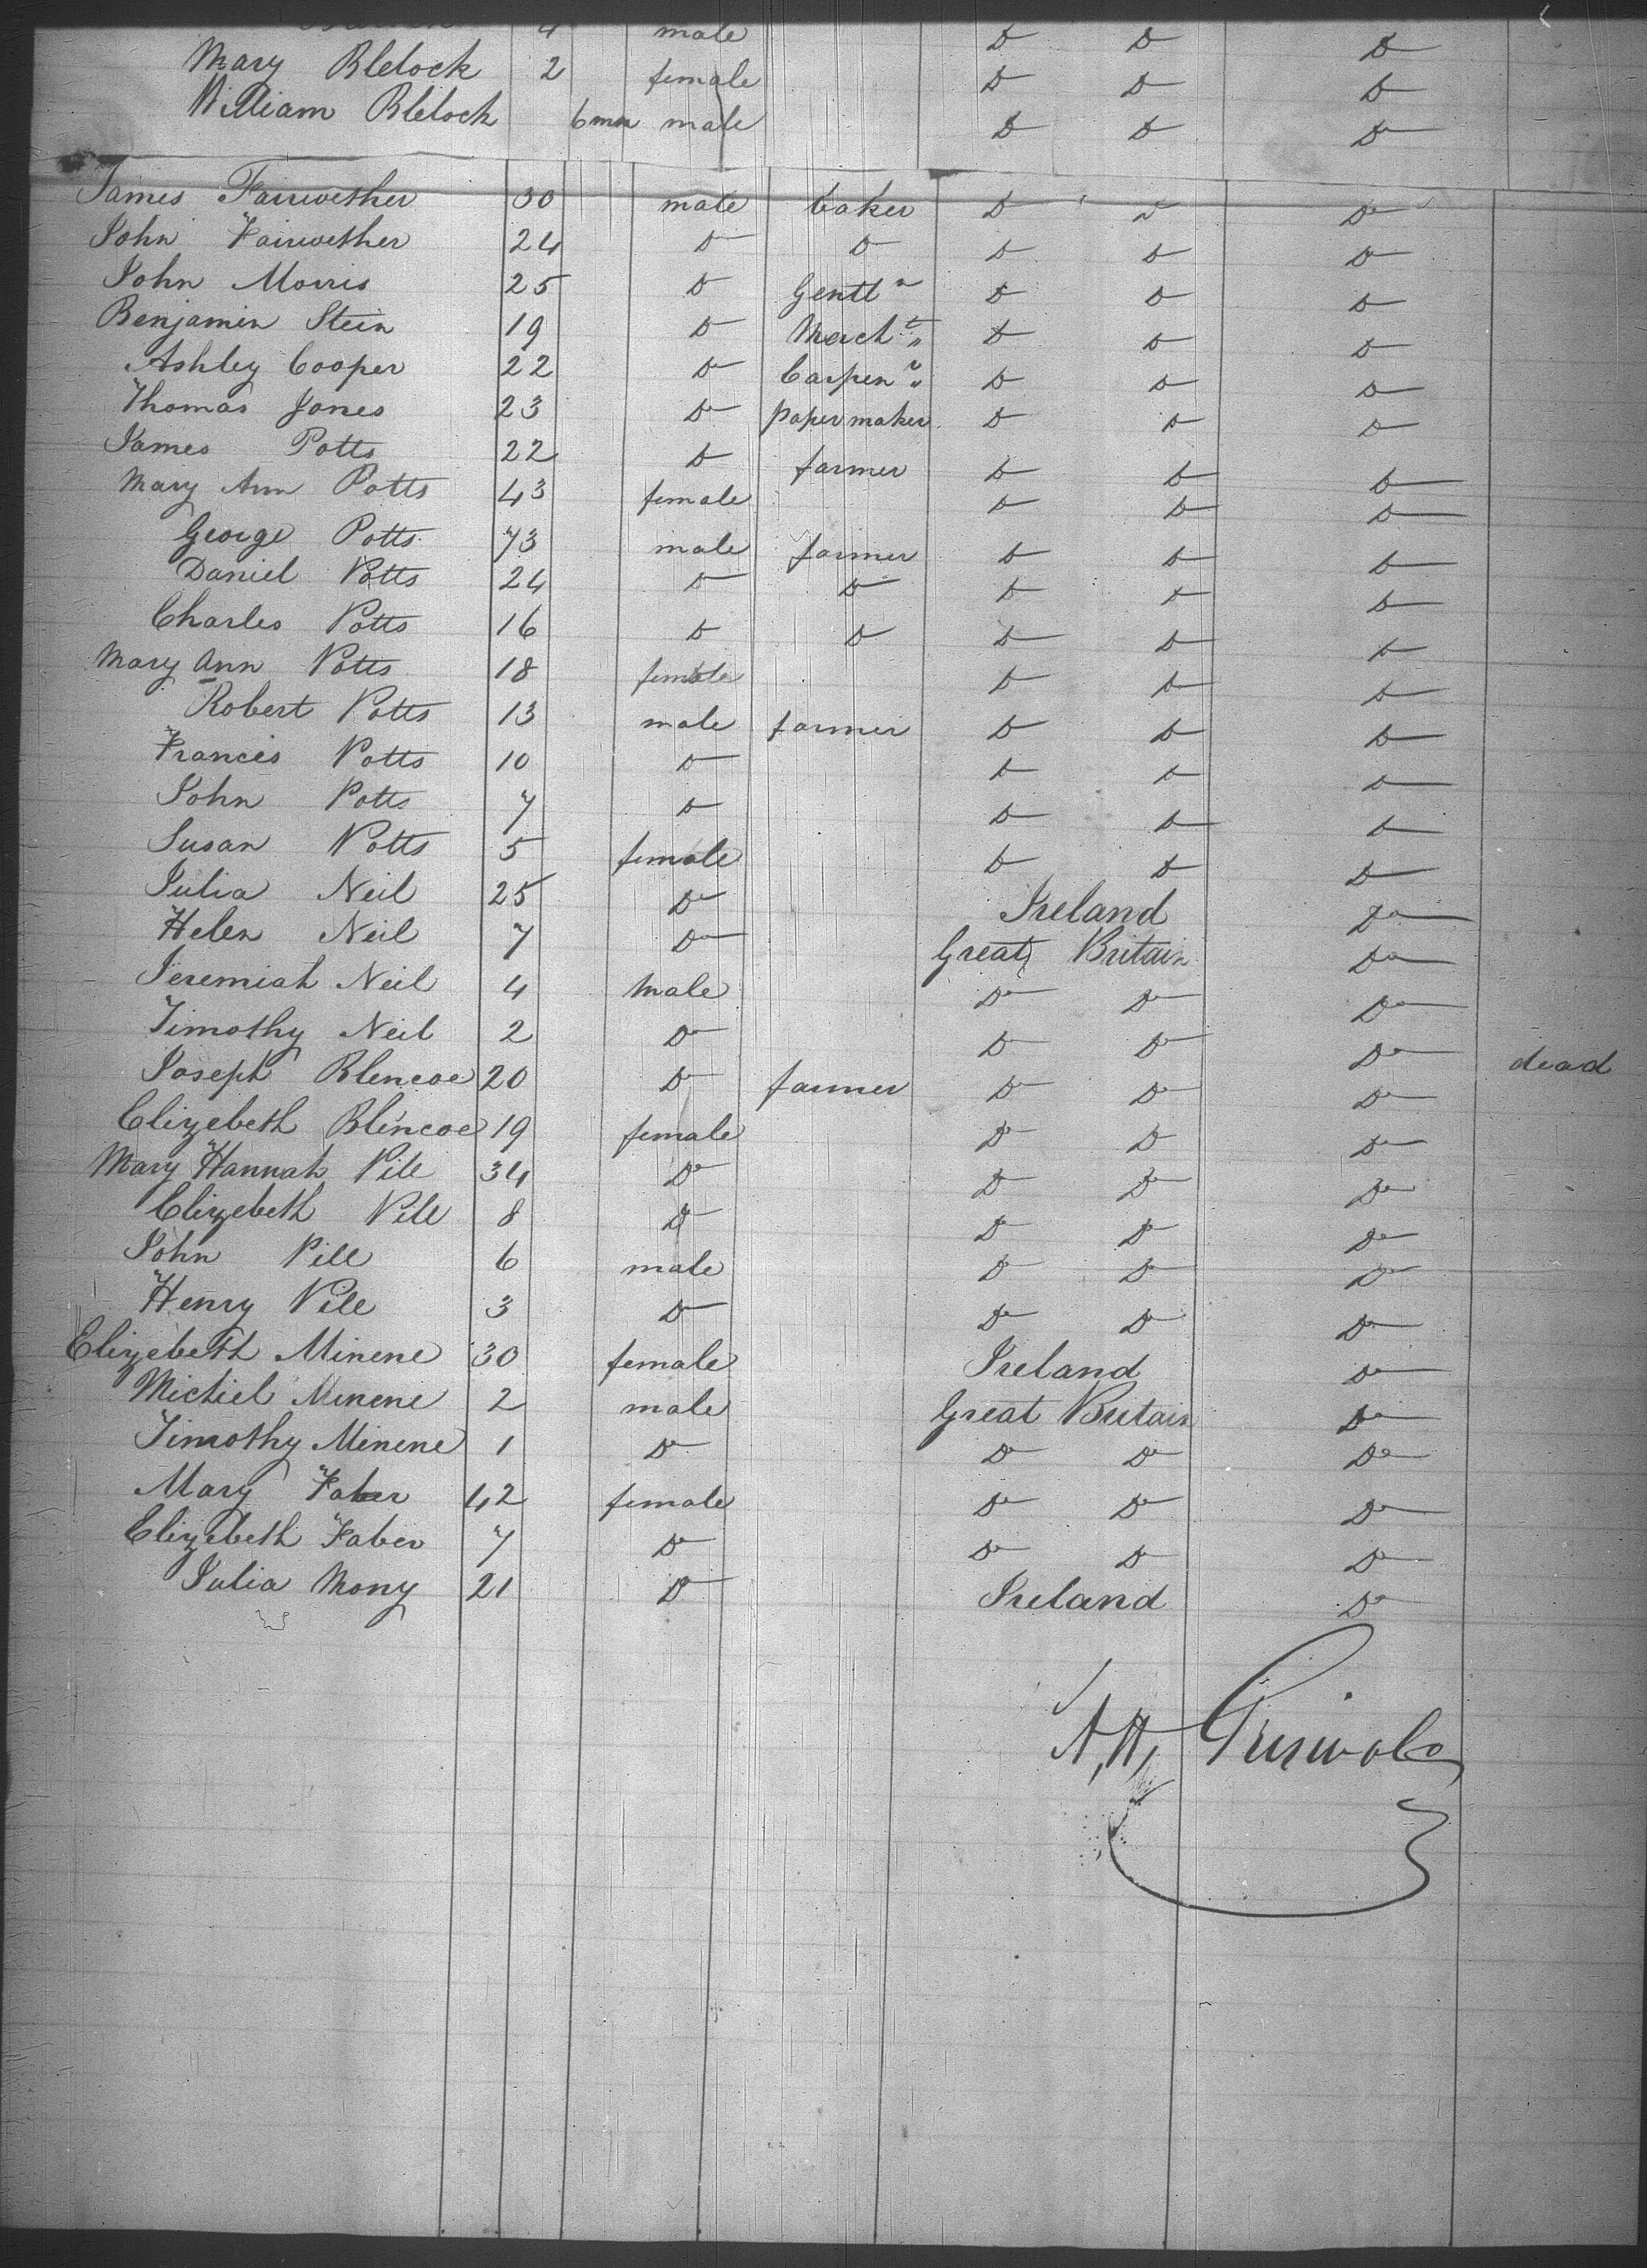 4 male D D D
Mary Blelock 2 female D D D
William Blelock 6 mn male D D D
James Fairwether 30 male baker D D Do
John Fairwether 24 D D D D D
John Morris 25 D Gentln D D D
Benjamin Stein 19 D Mercht D D D
Ashley Cooper 22 D Carpenr D D D
Thomas Jones 23 Do paper maker D D D
James Potts 22 D farmer D D D
Mary Ann Potts 43 female D D D
George Potts 73 male farmer D D D
Daniel Potts 24 D D D D D
Charles Potts 16 D D D D D
Mary Ann Potts 18 female D D D
Robert Potts 13 male farmer D D D
Francis Potts 10 D D D D
John Potts 7 D D D D
Susan Potts 5 female D D D
Julia Neil 25 Do Ireland Do
Helen Neil 7 Do Great Britain Do
Jeremiah Neil 4 Male Do Do Do
Timothy Neil 2 Do Do Do Do dead
Joseph Blencoe 20 Do farmer Do Do Do
Elizebeth Blencoe 19 female Do D Do
Mary Hannah Pile 34 Do D Do Do
Elizebeth Pile 8 D D Do Do
John Pile 6 male D Do Do
Henry Pile 3 Do Do Do Do
Elizebeth Minene 30 female Ireland Do
Michel Minene 2 male Great Britain Do
Timothy Minene 1 Do Do Do Do
Mary Faber 42 female Do Do Do
Elizebeth Faber 7 Do Do D Do
Julia Mony 21 D Ireland Do
A, H, Griswold